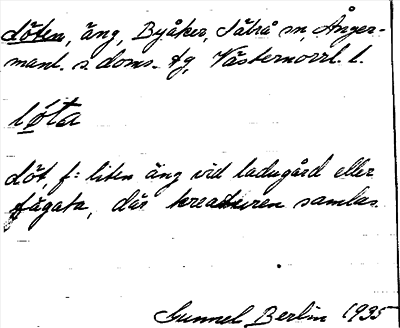 löten, äng, Byåker, Sätrå sn, Ånger-
manl. s. doms. tg, Västernorrl. l.
lo̲ta
löt, f: liten äng vid ladugård eller
fägata, där kreaturen samlas
Gunnel Berlin 1935